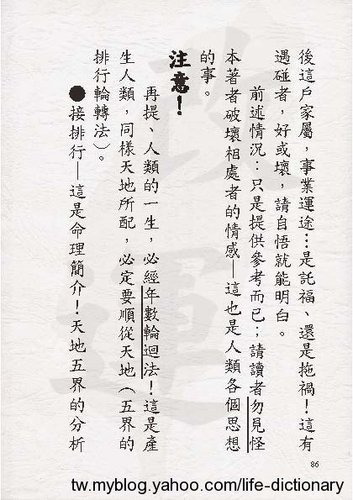 後這戶家屬，事業運途…是託福、還是拖禍！這有
遇碰者，好或壞，請自悟就能明白。
前述情況：只是提供參考而已；請讀者勿見怪
本著者破壞相處者的情感—這也是人類各個思想
的事。
注意！
再提、人類的一生，必經年數輪迴法！這是產
生人類，同樣天地所配，必定要順從天地（五界的
排行輪轉法）。
●接排行—這是命理簡介！天地五界的分析
86
改運
tw.myblog.yahoo.com/life-dictionary